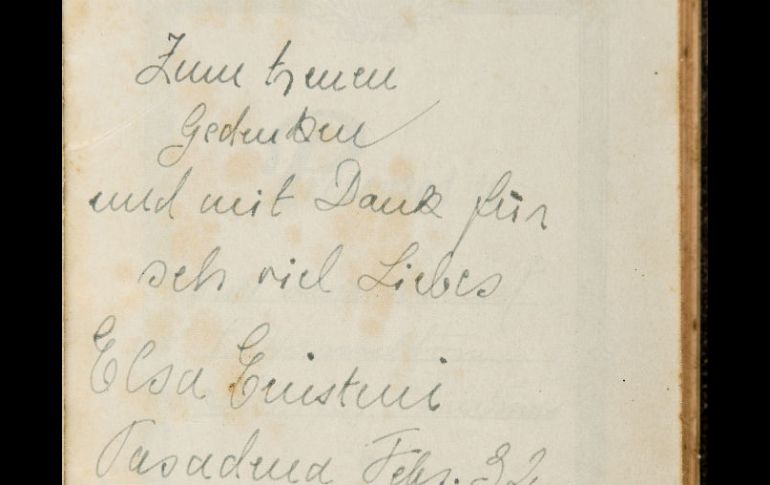 Zum treuen
Gedenken
und mit Dank für
sehr viel Liebes
Elsa Einstein
Pasadena Febr. 32